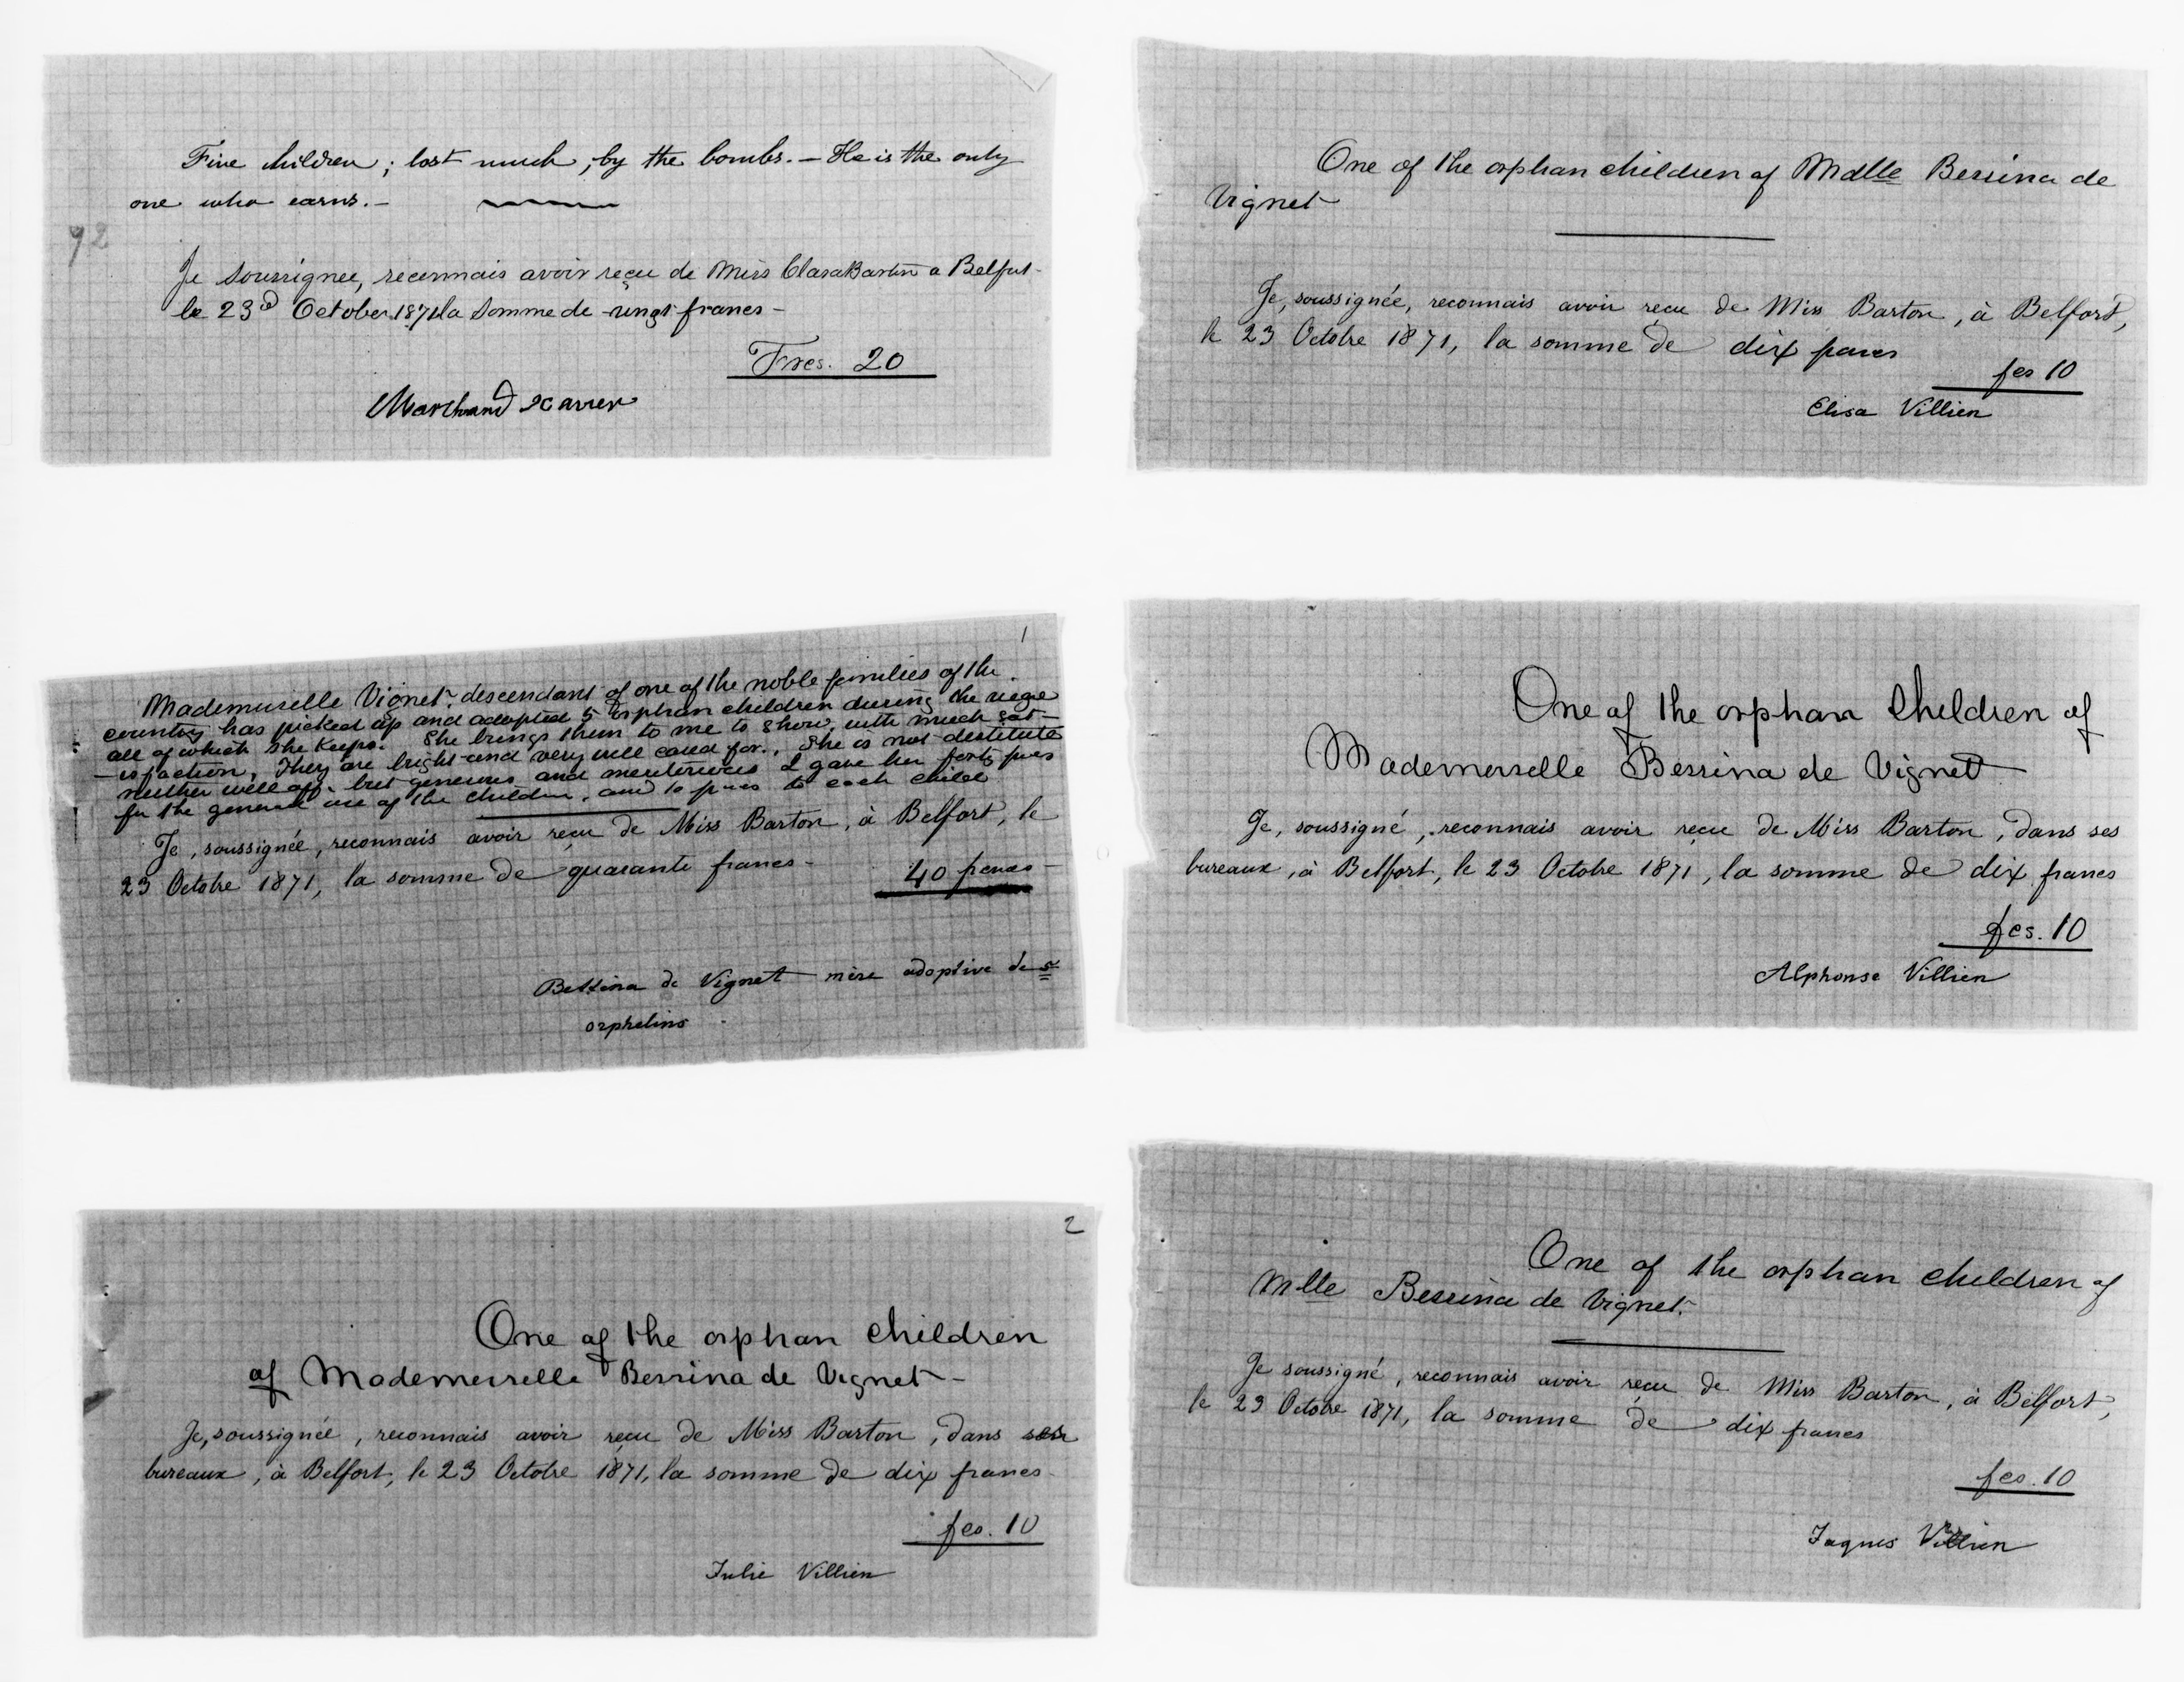 Five children; lost much, by the bombs. — He is the only
one who earns. —
92
Je soussignee, reconnais avoir reçu de Miss Clara Barton a Belfort
le 23d October 1871 la Somme de vingt francs —
Frcs. 20
Marchand Xavier
Mademoiselle Vignet descendant of one of the noble families of the
country has picked up and adopted 5 orphan children during the siege
all of which she keeps. She brings them to me to show, with much sat-
-isfaction, They are bright and very well cared for. She is not destitute
neither well off. but generous and meritorious I gave her forty frcs
for the general use of the children, and 10 frcs to each child
1
Je, soussignée, reconnais avoir reçu de Miss Barton, à Belfort, le
23 Octobre 1871, la somme de quarante francs —
40 francs
Bettina de Vignet mère adoptive de 5
orphelins
2
One of the orphan children
of Mademoiselle Bessina de Vignet —
Je, soussignée, reconnais avoir reçu de Miss Barton, dans ses
bureaux, à Belfort, le 23 Octobre 1871, la somme de dix francs
fcs. 10
Julie Villien
One of the orphan children of Mdlle Bessina de
Vignet
Je, soussignée, reconnais avoir reçu de Miss Barton, à Belfort,
le 23 Octobre 1871, la somme de dix francs
fcs 10
Elisa Villien
One of the orphan Children of
Mademoiselle Bessina de Vignet
Je, soussigné, reconnais avoir reçu de Miss Barton, dans ses
bureaux, à Belfort, le 23 Octobre 1871, la somme de dix francs
fcs. 10
Alphonse Villien
One of the orphan children of
Mlle Bessina de Vignet.
Je soussigné, reconnais avoir reçu de Miss Barton, à Belfort,
le 23 Octobre 1871, la somme de dix francs
fcs. 10
Jaques Villien